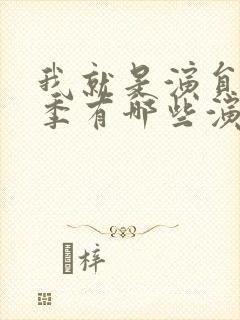 我就是演员
季有哪些演
梓